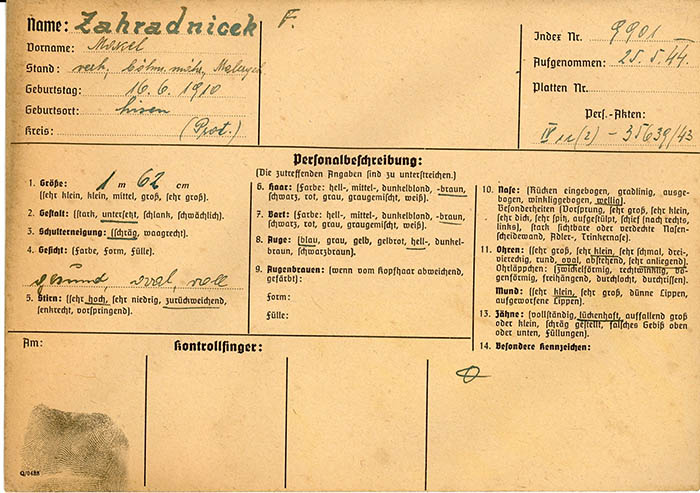 Name: Zahradnicek
F.
Vorname:
Stand: verh., böhm. mähr.
Geburtstag: 16. 6. 1910
Geburtsort:
Kreis: (Prot.)
Index Nr. 9901
Aufgenommen: 25. 5. 44.
Platten Nr.
Pers.-Akten:
35639/43
Personalbeschreibung:
(Die zutreffenden Angaben sind zu unterstreichen.)
1. Größe: 1 m 62 cm
(sehr klein, klein, mittel, groß, sehr groß).
2. Gestalt: (stark, untersetzt, schlank, schwächlich).
3. Schulterneigung: (schräg, waagrecht).
4. Gesicht: (Farbe, Form, Fülle).
gesund, oval, voll
5. Stirn: (sehr hoch, sehr niedrig, zurückweichend,
senkrecht, vorspringend).
6. Haar: (Farbe: hell-, mittel-, dunkelblond, -braun,
schwarz, rot, grau, graugemischt, weiß).
7. Bart: (Farbe: hell-, mittel-, dunkelblond, -braun,
schwarz, rot, grau, graugemischt, weiß).
8. Auge: (blau, grau, gelb, gelbrot, hell-, dunkel-
braun, schwarzbraun).
9. Augenbrauen: (wenn vom Kopfhaar abweichend,
gefärbt):
Form:
Fülle:
10. Nase: (Rücken eingebogen, gradlinig, ausge-
bogen, winkliggebogen, wellig).
Besonderheiten (Vorsprung, sehr groß, sehr klein,
sehr dick, sehr spitz, aufgestülpt, schief (nach rechts,
links), stark sichtbare oder verdeckte Nasen-
scheidewand, Adler-, Trinkernase).
11. Ohren: (sehr groß, sehr klein, sehr schmal, drei-,
viereckig, rund, oval, abstehend, sehr anliegend).
Ohrläppchen: (zwickelförmig, rechtwinklig, bo-
genförmig, freihängend, durchlocht, durchrissen).
Mund: (sehr klein, sehr groß, dünne Lippen,
aufgeworfene Lippen).
13. Zähne: (vollständig, lückenhaft, auffallend groß
oder klein, schräg gestellt, falsches Gebiß oben
oder unten, Füllungen).
14. Besondere Kennzeichen:
Am:
Kontrollfinger:
Q/0488